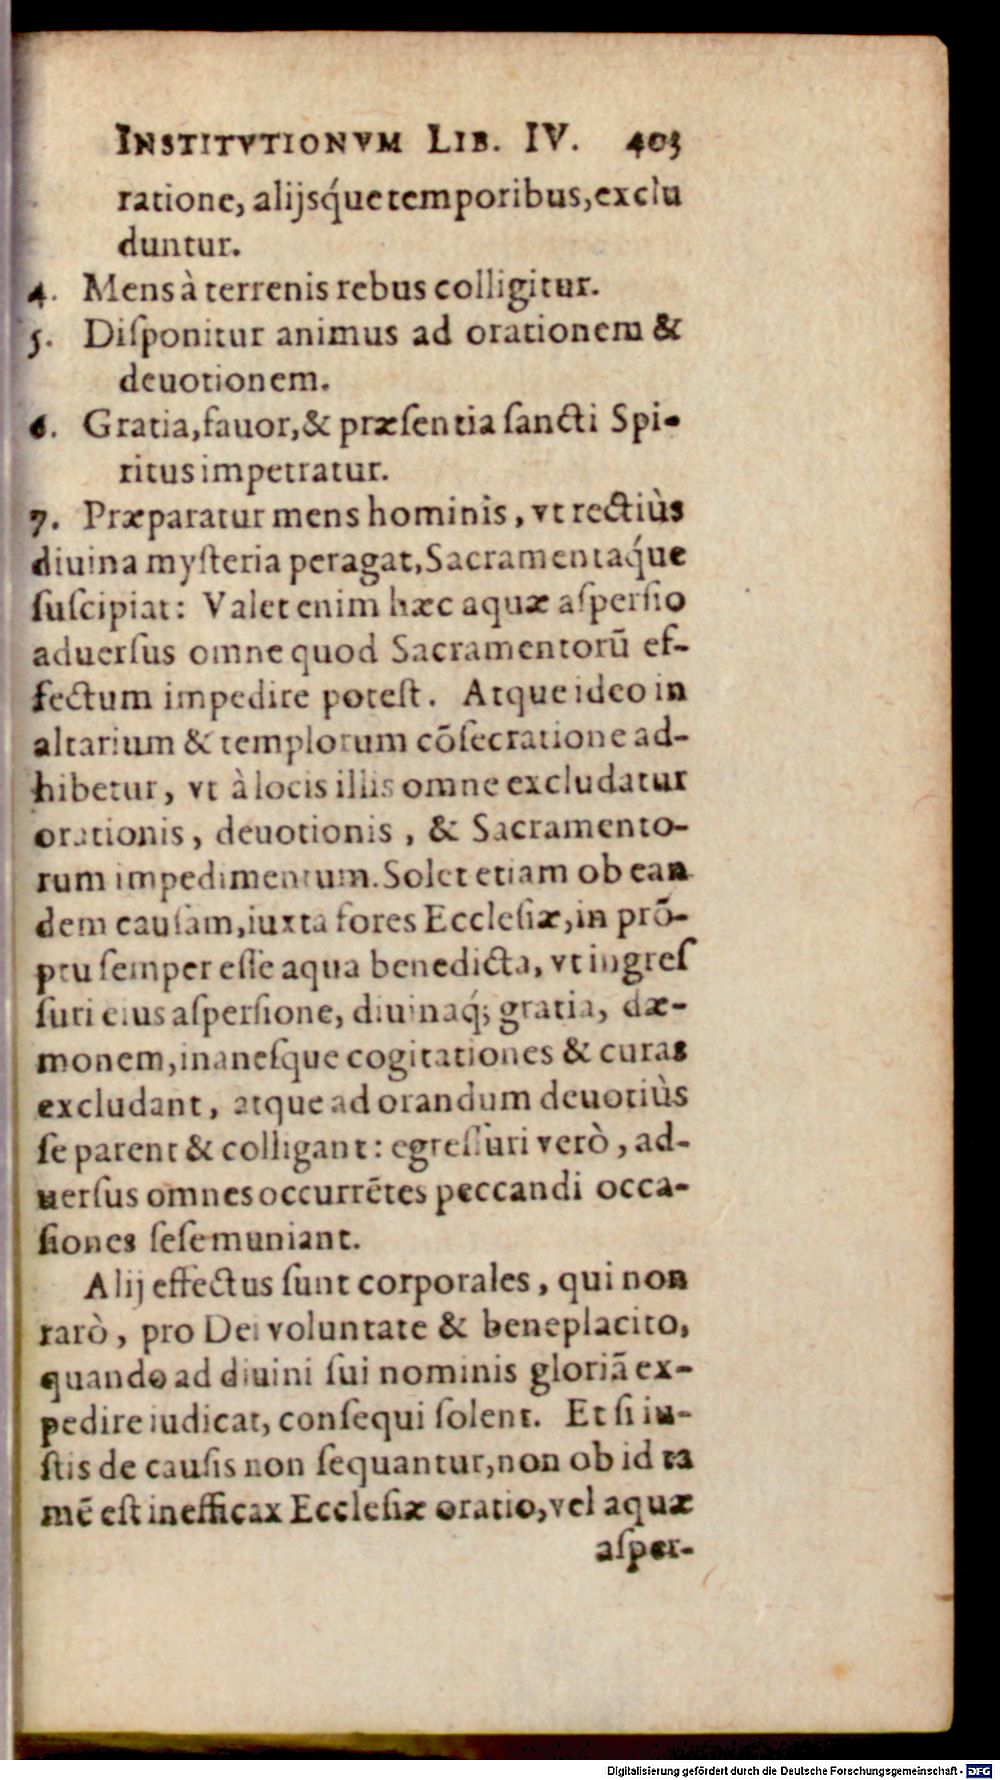 INSTITVTIONVM LIB. IV. 403
ratione, alijsq́ue temporibus, exclu
duntur.
4. Mens à terrenis rebus colligitur.
5. Diſponitur animus ad orationem &
deuotionem.
6. Gratia, fauor, & præſentia ſancti Spi-
ritus impetratur.
7. Præparatur mens hominis, vt rectiùs
diuina myſteria peragat, Sacramentaq́ue
ſuſcipiat: Valet enim hæc aquæ aſperſio
aduerſus omne quod Sacramentorū ef-
fectum impedire poteſt. Atque ideo in
altarium & templorum cōſecratione ad-
hibetur, vt à locis illis omne excludatur
orationis, deuotionis, & Sacramento-
rum impedimentum. Solet etiam ob ean
dem cauſam, iuxta fores Eccleſiæ, in prō-
ptu ſemper eſſe aqua benedicta, vt ingreſ
ſuri eius aſperſione, diuinaq́; gratia, dæ-
monem, inaneſque cogitationes & curas
excludant, atque ad orandum deuotiùs
ſe parent & colligant: egreſſuri verò, ad-
uerſus omnes occurrētes peccandi occa-
ſiones ſeſe muniant.
Alij effectus ſunt corporales, qui non
rarò, pro Dei voluntate & beneplacito,
quando ad diuini ſui nominis gloriā ex-
pedire iudicat, conſequi ſolent. Et ſi iu-
ſtis de cauſis non ſequantur, non ob id ta
mē eſt inefficax Eccleſiæ oratio, vel aquæ
aſper-
Digitalisierung gefördert durch die Deutsche Forschungsgemeinschaft - DFG